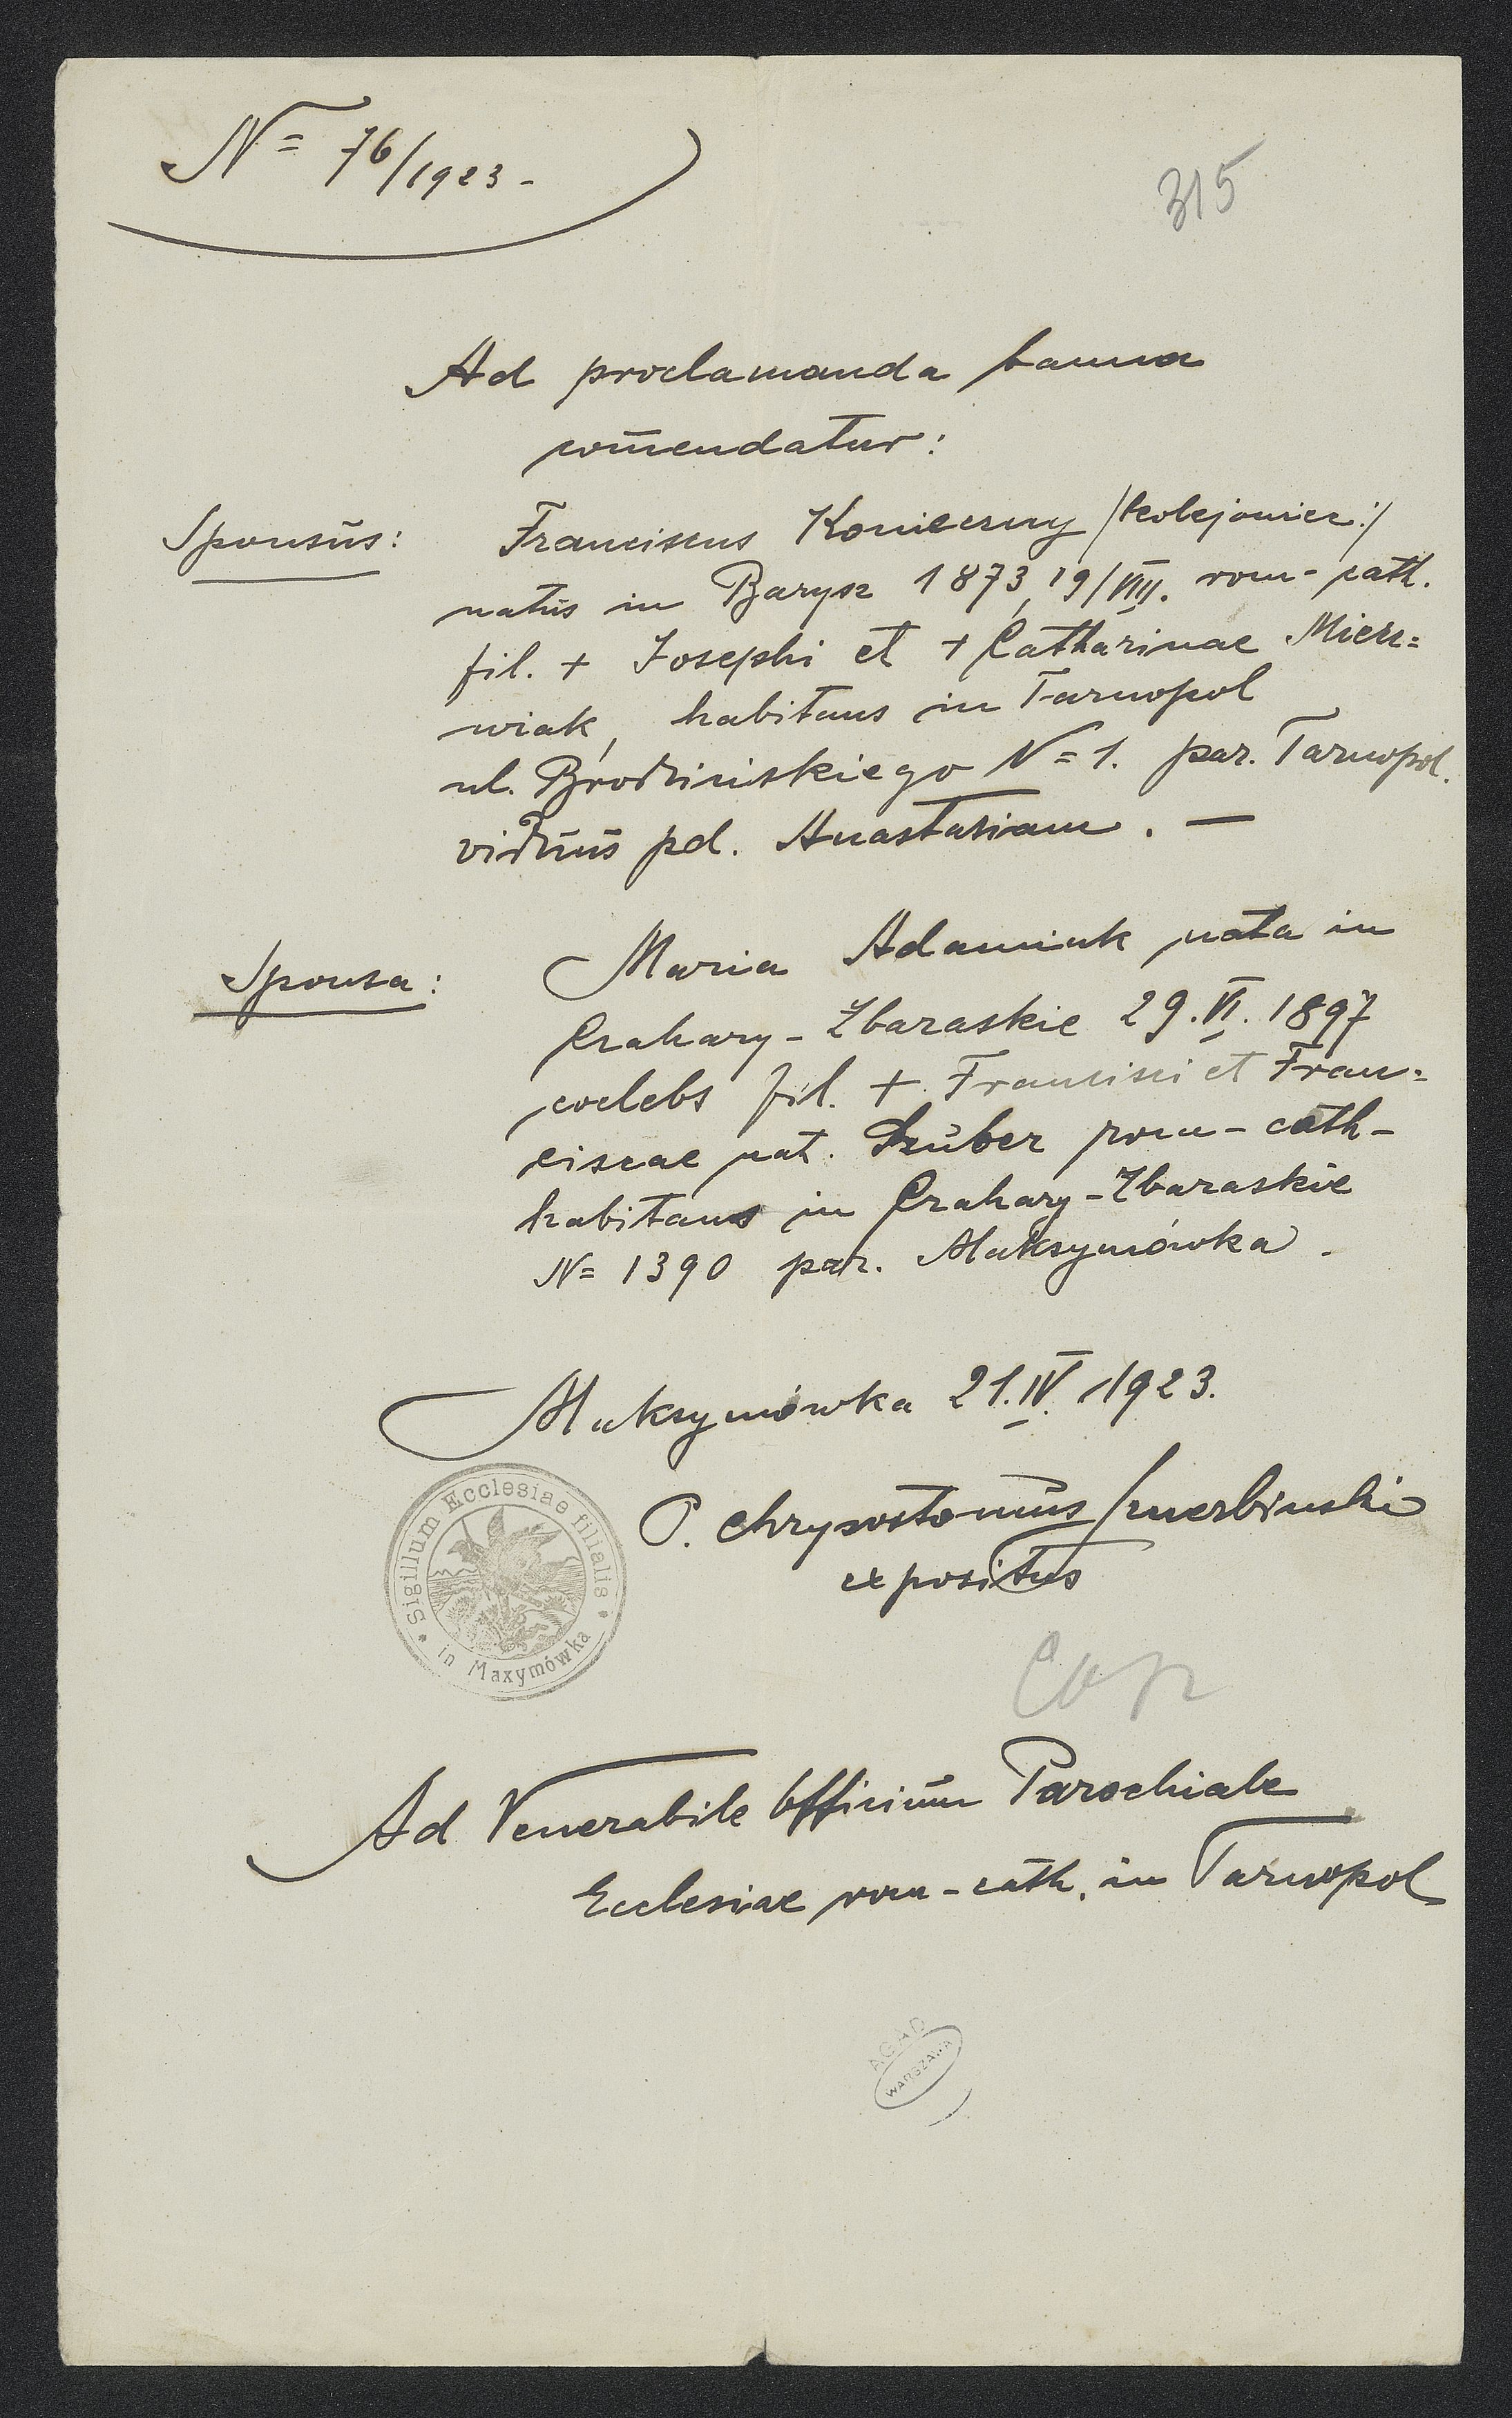 N= 76/1923-
315
Ad proclamanda banna
com̄endatur:
Sponsus: Franciscus Konieczny /kolejowiec:/
natus in Barysz 1873, 19/VIII. rom-cath.
fil. + Josephi et + Catharinae Mierz=
wiak, habitans in Tarnopol
ul. Brodzinskiego N=1. par. Tarnopol.
viduus pd. Anastasiam. —
Sponsa: Maria Adamiuk nata in
Czahary-Zbaraskie 29.VI.1897
coelebs fil. + Francisci et Fran=
ciscae nat. Dzuber rom-cath-
habitans in Czahary-Zbaraskie
N= 1390 par. Maksymówka.
Maksymówka 21.IV.1923.
P. Chrysostomus
expositus
Sigillum Ecclesiae filialis
in Maxymówka
Cop
Ad Venerabile Officium Parochiale
Ecclesiae rom-cath. in Tarnopol
AGAD
WARSZAWA